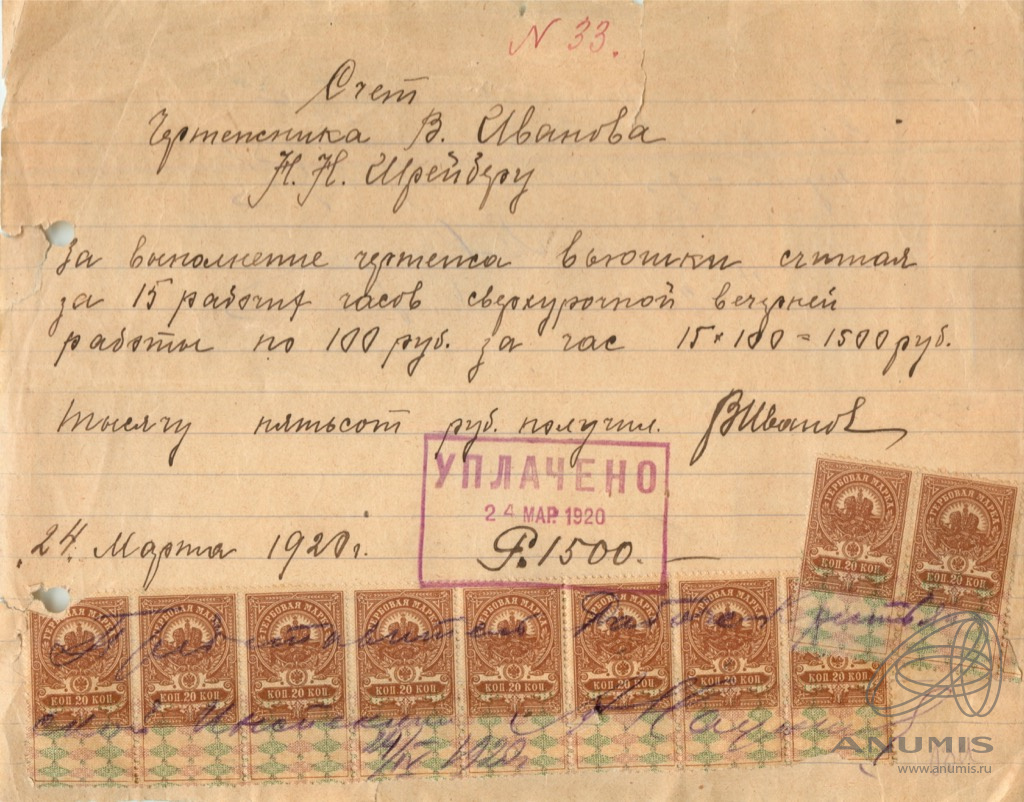 N 33.
Счет
Чертежника В. Иванова
Н. Н. Шрейберу
За выполнение чертежа вьюшки считая
за 15 рабочих часов сверхурочной вечерней
работы по 100 руб. за час 15 × 100 = 1500 руб.
Тысячу пятьсот руб. получил. ВИванов
УПЛАЧЕНО
24 МАР. 1920
Р. 1500.
24 Марта 1920 г.
ГЕРБОВАЯ МАРКА ГЕРБОВАЯ МАРКА
КОП 20 КОП КОП 20 КОП
ГЕРБОВАЯ МАРКА ГЕРБОВАЯ МАРКА ГЕРБОВАЯ МАРКА ГЕРБОВАЯ МАРКА ГЕРБОВАЯ МАРКА ГЕРБОВАЯ МАРКА ГЕРБОВАЯ МАРКА
КОП 20 КОП КОП 20 КОП КОП 20 КОП КОП 20 КОП КОП 20 КОП КОП 20 КОП КОП 20 КОП КОП 20 КОП
Представитель
Инспекции
1920 г.
ANUMIS
www.anumis.ru